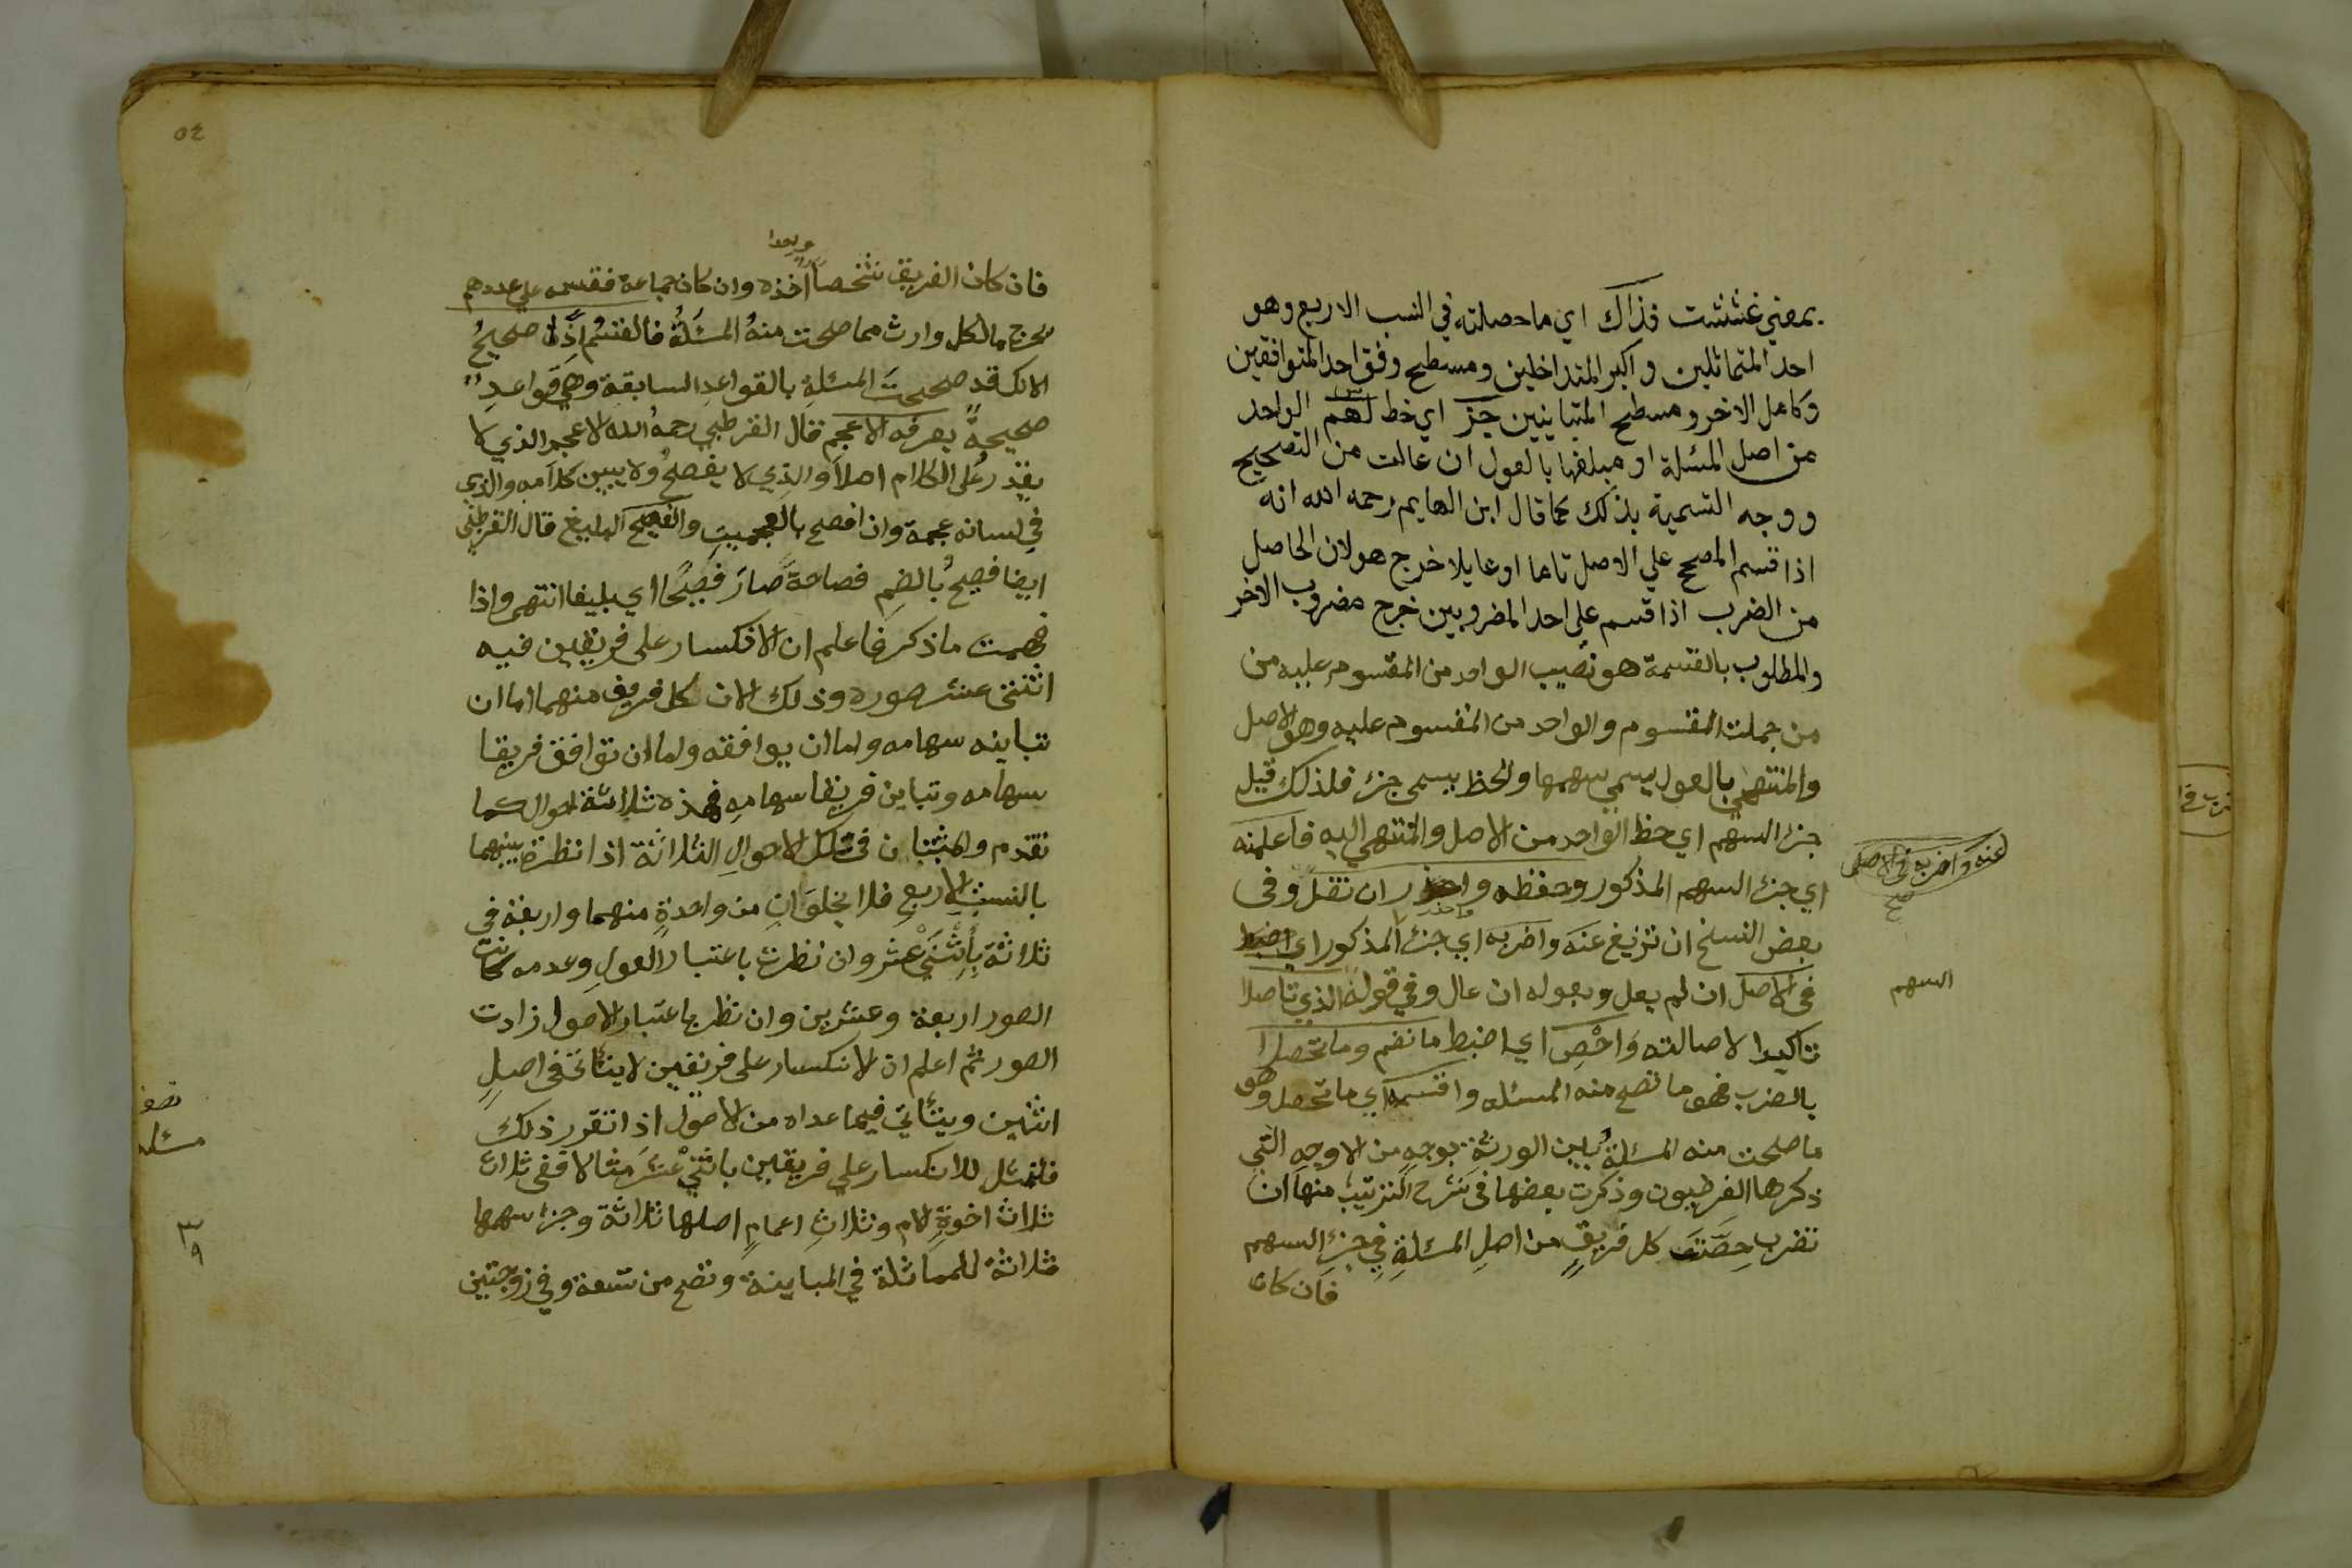 بمعني غششت فذاك اي ما حصلته في النسب الاربع وهو
احد المتماثلين واكبر المتداخلين ومسطح وفق احد المتوافقين
وكامل الاخر ومسطح المتباينين جزء اي خط لهم الواحد
من اصل المسئلة او مبلغها بالعول ان عالت من التصحيح
ووجه التسمية بذلك كما قال ابن الهايم رحمه الله انه
اذا قسم المصحح علي الاصل تاما او عايلا خرج هو لان الحاصل
من الضرب اذا قسم على احد المضروبين خرج مضروب الاخر
والمطلوب بالقسمة هو نصيب الواحد من المقسوم عليه من
من جملت المقسوم والواحد من المقسوم عليه وهو الاصل
والمنتهي بالعول يسمي سهمها والحظ يسمي جزء فلذلك قيل
جزء السهم اي حظ الواحد من الاصل والمنتهي اليه فاعلمنه
اي جزء السهم المذكور وحفظه واحذر ان تضل وفي
واحذر
بعض النسخ ان تزيغ عنه واضربه اي جزء المذكور اي
في الاصل ان لم يعل وبعوله ان عال وفي قوله الذي تاصلا
تاكيدا لاصالته وَاحْصِ اي اضبط ما نضم وما تحصلا
بالضرب فهو ما تصح منه المسئله واقسمه اي ما تحصل وهو
ما صلحت منه المسئلة بين الورثة بوجه من الاوجه التي
ذكرها الفرضيون وذكرت بعضها في شرح الترتيب منها ان
تضرب حِصَّتَ كل فريقٍ من اصلِ المسئلةِ في جزء السهم
فان كان
عنه واضربه في الاصل
صح
السهم
٥٤
واحدا
فان كان الفريق شخصا اخذه وان كان جماعة فقسمه علي عددهم
يخرج مالكل وارث مما صلحت منهُ المسئلةُ فالقسم اذًا صحيحُ
لانك قد صححت المسئلة بالقواعد السابقة وهي قواعدِ
صحيحةً يعرفه الاعجم قال القرطبي رحمه الله الاعجم الذي لا
يقدر على الكلام اصلاً والذي لا يفصح ولا يبين كلامه والذي
في لسانه عجمة وان افصح بالعجميت والفصيح البليغ قال القرطبي
ايضا فصيحُ بالضمِ فصاحةً صارَ فصيحًا اي بليغا انتهى واذا
فهمت ما ذكر فاعلم ان الانكسار على فريقين فيه
اثنتي عشر صوره وذلك لان كل فريق منهما اما ان
تباينه سهامه واما ان يوافقه واما ان توافق فريقا
سهامه وتباين فريقا سهامهِ فهذه ثلاثة احوال كما
تقدم والمثبتان في تلك الاحوالِ الثلاثة اذا نظرت بينهما
بالنسبِ الاربعِ فلا يخلوَانِ من واحدةٍ منهما واربعة في
ثلاثةٍ بأِثْنَيْ عشر وان نظرت باعتبار العولِ وعدمه كانت
الصور اربعة وعشرين وان نظر باعتبار الاصول زادت
الصور ثم اعلم ان الانكسار على فريقين لا يتاتى في اصلٍ
اثنين ويتأتي فيما عداه من الاصول اذا تقرر ذلك
فلنمثل للانكسار علي فريقين باثني عشَرَ مثالا ففي ثلاث
ثلاث اخوةٍ لام وثلاثِ اعمامٍ اصلها ثلاثة وجزء سهمها
ثلاثةُ للمماثلة في المباينة وتصح من تسعة وفي زوجتين
مسئله
٣
٩